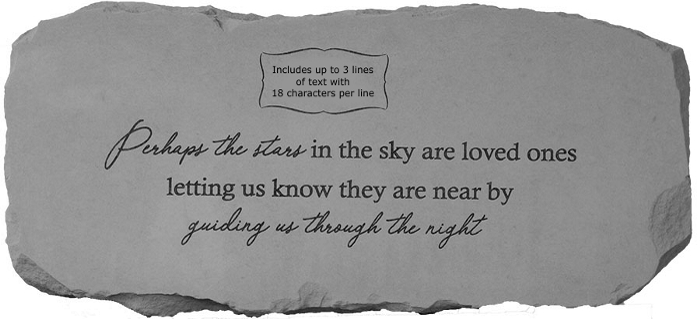 Includes up to 3 lines
of text with
18 characters per line
Perhaps the stars in the sky are loved ones
letting us know they are near by
guiding us through the night